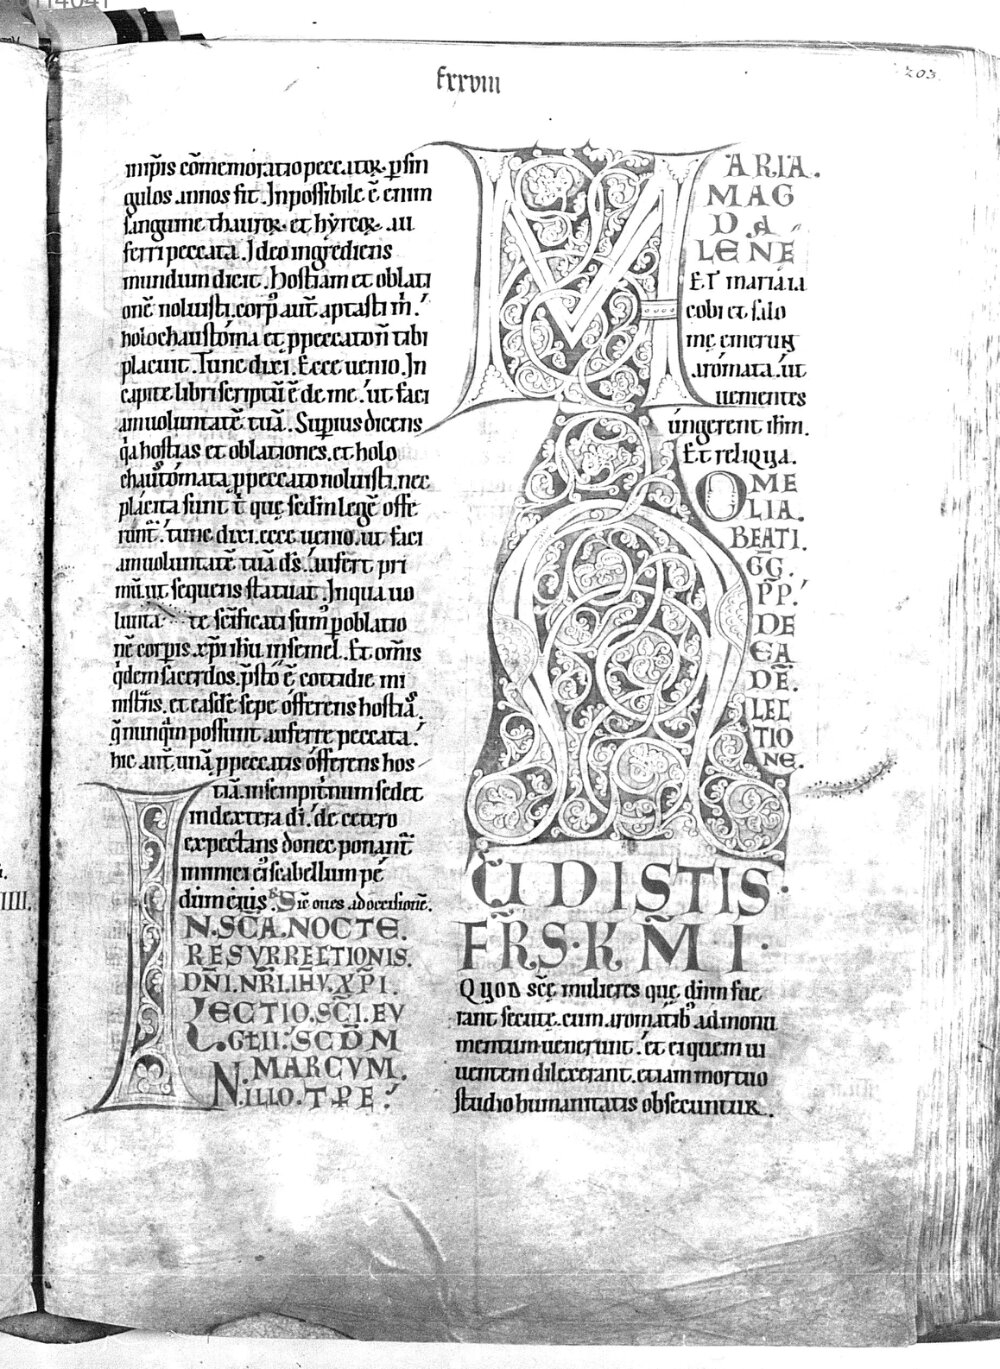 114041
203
fxxviii
imp̄is cōmemoratio peccatoꝝ. ꝑ sin
gulos annos fit. Inpossibile ē enim
sanguine thauroꝝ et hyrcoꝝ au
ferri peccata. Ideo ingrediens
mundum dicit. Hostiam et oblati
onē noluisti. corpꝰ aut̄ aptasti m̄.
holochaustōma et p peccaton̄ tibi
placuit. Tunc dixi. Ecce uenio. In
capite libri scriptū ē de me. ut faci
am uoluntatē tuā. Superius dicens
q̇a hostias et oblationes. et holo
chautómata p peccato noluisti. nec
plácita sunt t̄ quę sedm Legē offe
runt̄. tunc dixi. ecce uenio. ut faci
am uoluntatē tuā ds̄. aufert pri
mū. ut sequens statuat. In qua uo
lunta te scīficati sumꝰ p oblatio
nē corpis. xp̄i ihū in semel. Et om̄is
q̇dem sacerdos. p̄sto ē cottidie mi
nistrās. et easdē sepe offerens hostiā.
q̄ nunq̄m possunt auferre peccata.
hic aut̄ unā p peccatis offerens hos
tiā. in sempit̄num sedet
in dextera di. de cetero
expectans donec ponant̄
inimici eiꝰ scabellum pe
dum eius. Sic̄ oues ad occisionē.
IN. SC̄A. NOCTE.
RESVRRECTIONIS.
DN̄I. NR̄I. IHV. XP̄I.
LECTIO. SC̄I. EV
GL̄II: SCDM
MARCVM.
N. ILLO. TPE.
MARIA.
MAG
DA
LENE
ET maria ia
cobi et salo
mę emerunt
arómata. ut
uenientes
úngerent ihm.
Et reliqua.
OME
LIA.
BEATI.
GG.
PP.
DE
EA
DĒ.
LEC
TIO
NE.
AUDISTIS.
FRS. K̄M̄I.
Quod scē mulieres quę dnm fue
rant secutę. cum aromatibꝰ ad monu
mentum uenerunt. et ei quem ui
uentem dilexerant. etiam mortuo
studio humanitatis obsecuntur.